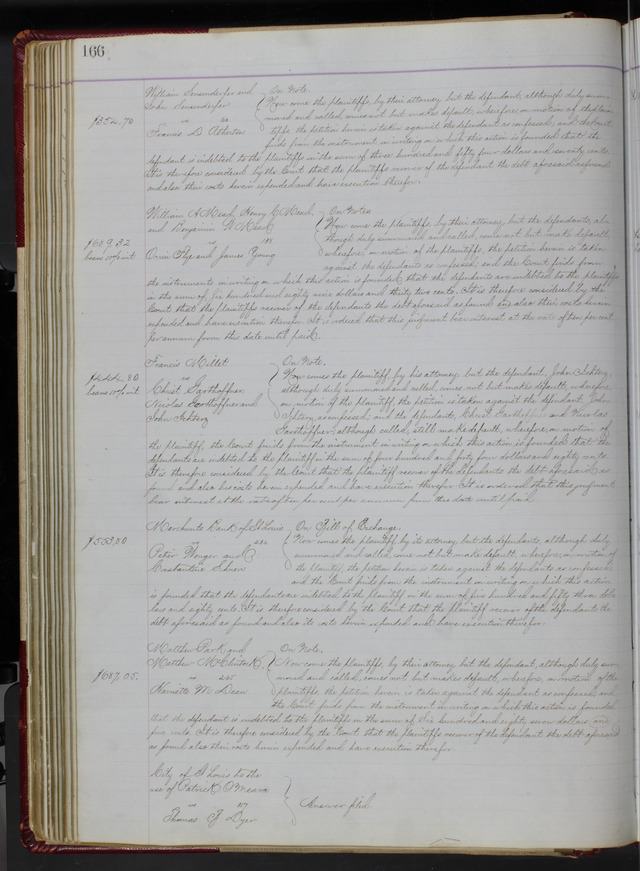 166
William Sensenderfer and } On Note.
John Sensenderfer
Now come the plaintiffs, by their attorney, but the defendant, although duly sum-
moned and called, comes not but makes default, wherefore on motion of the plain-
$354.70
vs
Francis D Atherton
tiffs, the petition herein is taken against the defendant as confessed, and the Court
finds from the instrument in writing on which this action is founded that the
defendant is indebted to the plaintiffs in the sum of three hundred and fifty four dollars and seventy cents.
It is therefore considered by the Court that the plaintiffs recover of the defendant the debt aforesaid as found
and also their costs herein expended and have execution therefor.
William A Meach, Henry C Meach, } On Notes
and Benjamin W Meach
Now come the plaintiffs, by their attorney, but the defendants, al-
though duly summoned and called, come not but make default
$609.32
bears 10% int
vs
Orrin Flye and James Young
wherefore, on motion of the plaintiffs, the petition herein is taken
against the defendants as confessed and the Court finds from
the instruments in writing on which this action is founded that the defendants are indebted to the plaintiffs
in the sum of six hundred and nine dollars and thirty two cents. It is therefore considered by the
Court that the plaintiffs recover of the defendants the debt aforesaid as found and also their costs herein
expended and have execution therefor. It is ordered that this judgment bear interest at the rate of ten per cent
per annum from this date until paid.
Francis Millet } On Note.
Now comes the plaintiff, by his attorney, but the defendant, John
$444.80
bears 10% int
vs
Christ Gasthoffner
although duly summoned and called, comes not but makes default, wherefore
Nicolas Gasthoffner and
on motion of the plaintiff the petition is taken against the defendant, John
John
as confessed, and the defendants, Christ Gasthoffner and Nicolas
Gasthoffner, although called, still make default, wherefore, on motion of
the plaintiff, the Court finds from the instrument in writing on which this action is founded that the
defendants are indebted to the plaintiff in the sum of four hundred and forty four dollars and eighty cents.
It is therefore considered by the Court that the plaintiff recover of the defendants the debt aforesaid as
found and also his costs herein expended and have execution therefor. It is ordered that this judgment
bear interest at the rate of ten per cent per annum from this date until paid.
Merchants Bank of St Louis } On Bill of Exchange.
Now comes the plaintiff, by its attorney, but the defendants, although duly
$553.80
vs
Peter Wonger and
summoned and called, come not but make default, wherefore, on motion of
Constantine
the plaintiff, the petition herein is taken against the defendants as confessed
and the Court finds from the instrument in writing on which this action
is founded that the defendants are indebted to the plaintiff in the sum of five hundred and fifty three dol-
lars and eighty cents. It is therefore considered by the Court that the plaintiff recover of the defendants the
debt aforesaid as found and also its costs herein expended and have execution therefor.
Matthew Park and } On Note.
Matthew McClintock
Now come the plaintiffs, by their attorney, but the defendant, although duly sum-
$687.05.
vs
Harriette M Dean
moned and called, comes not but makes default, wherefore, on motion of the
plaintiffs, the petition herein is taken against the defendant as confessed, and
the Court finds from the instrument in writing on which this action is founded
that the defendant is indebted to the plaintiffs in the sum of Six hundred and eighty seven dollars, and
five cents. It is therefore considered by the Court that the plaintiffs recover of the defendant the debt aforesaid
as found also their costs herein expended and have execution therefor.
City of St Louis to the
use of Patrick O'Meara
vs
Thomas F Dyer } Answer filed.